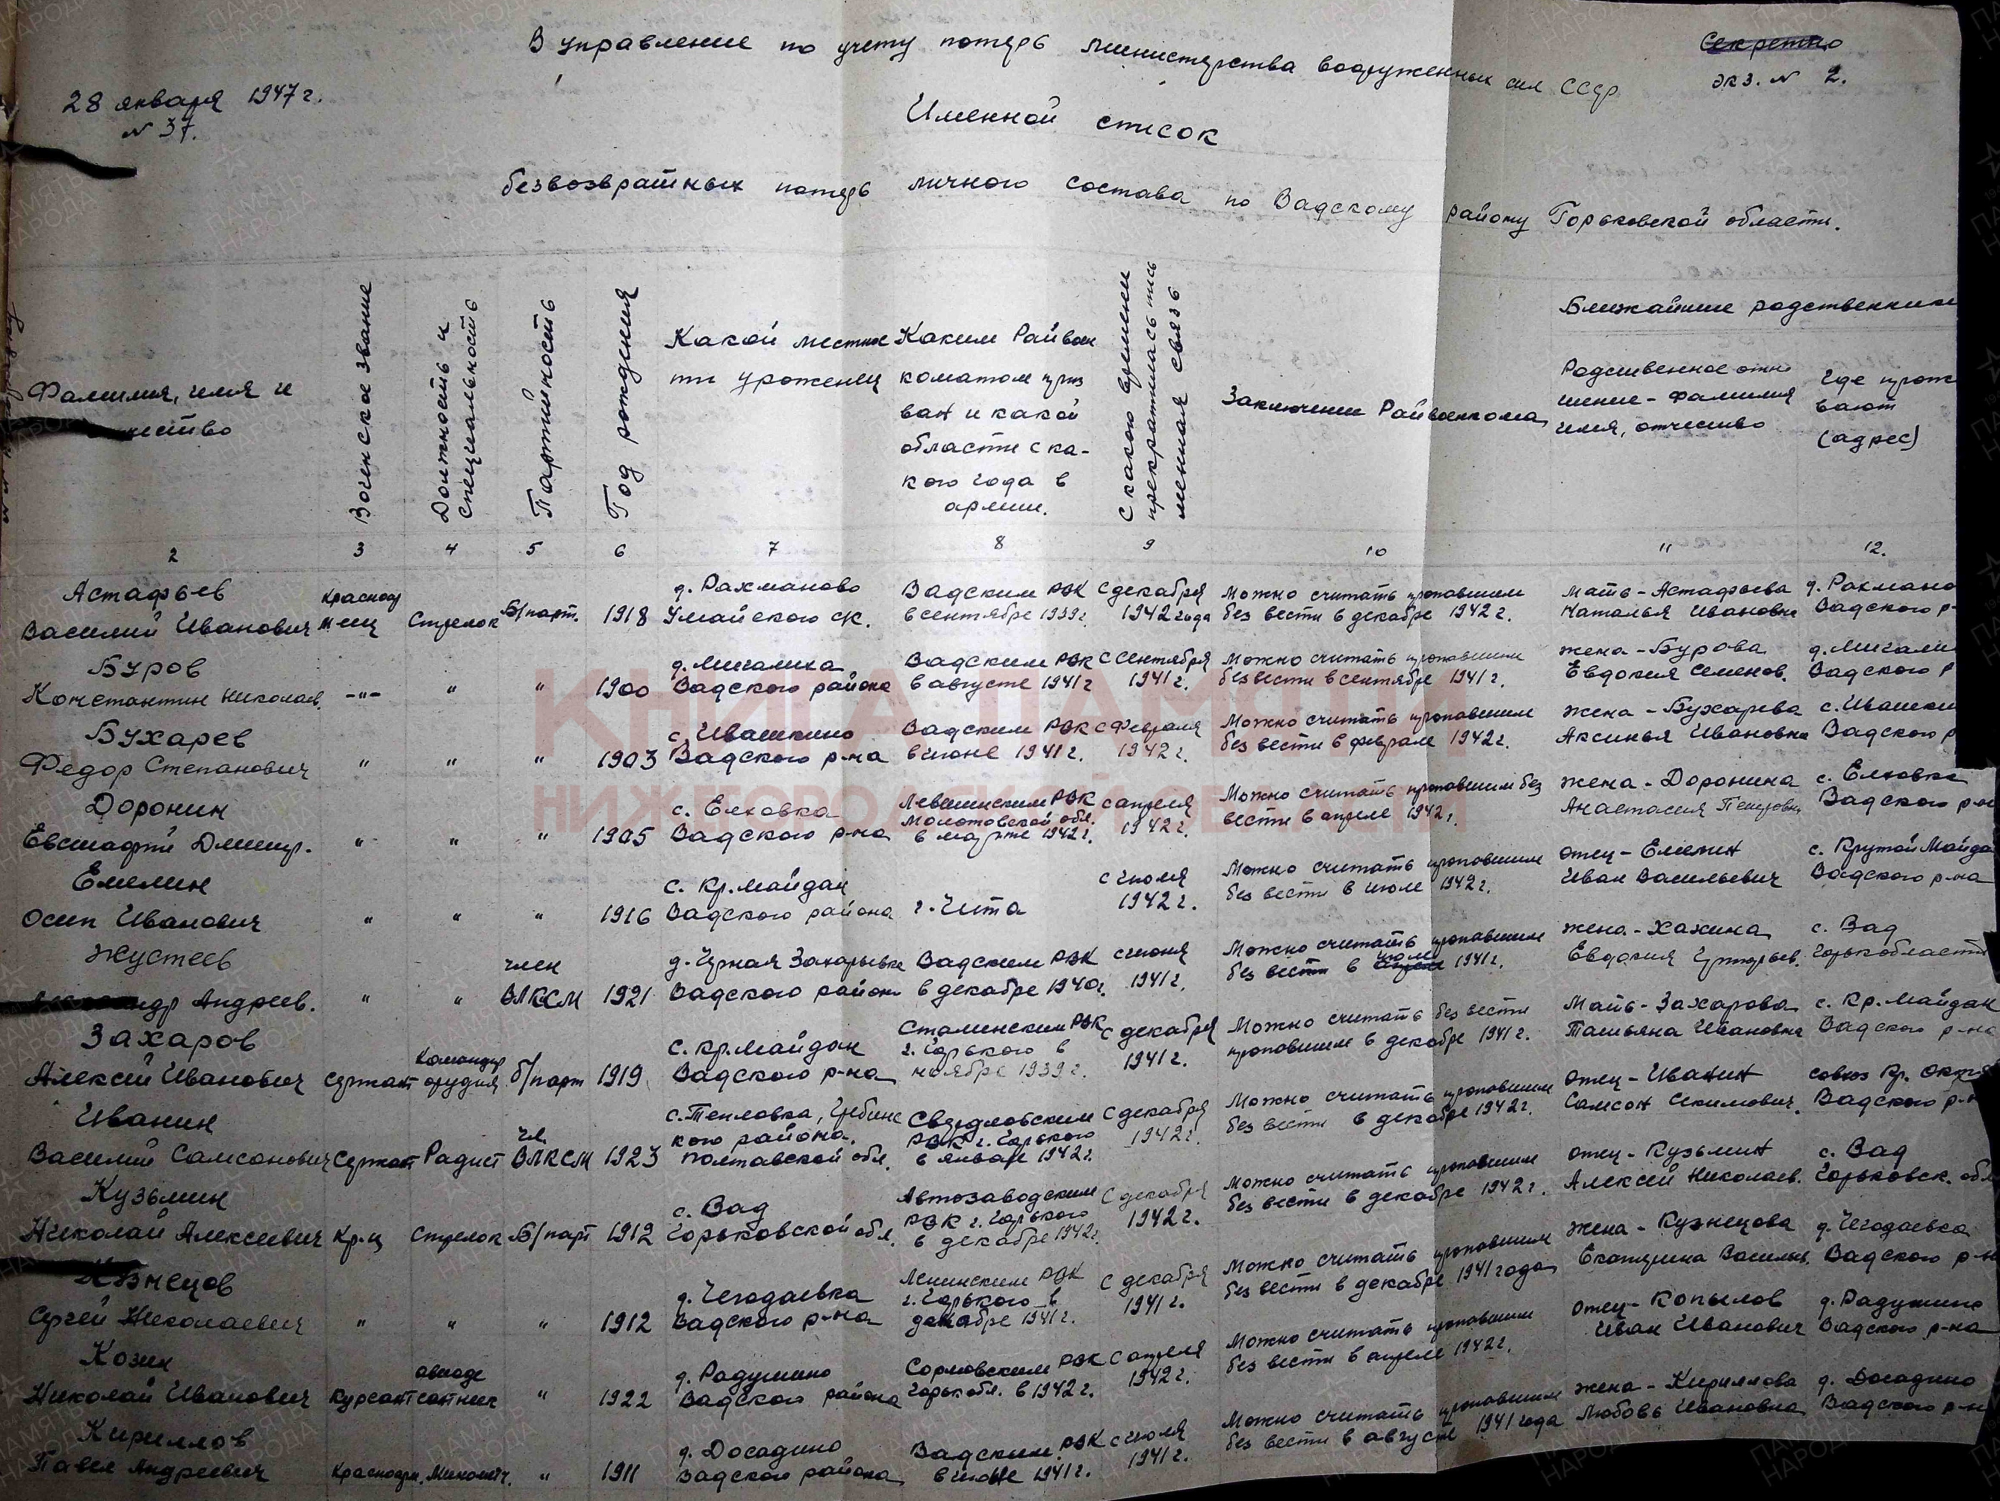 Секретно
экз. N 2.
В управление по учету потерь министерства вооруженных сил СССР
28 января 1947 г.
N 37.
Именной список
безвозвратных потерь личного состава по Вадскому району Горьковской области.
Фамилия, имя и
Воинское звание
Должность и специальность
Партийность
Год рождения
Какой местнос
ти уроженец
Каким Райвоен
коматом приз
ван и какой
области с ка-
кого года в
армии.
С какого времени
прекратилась пись
менная связь
Заключение Райвоенкома
Ближайшие родственники
Родственное отно
шение - фамилия
имя, отчество
Где прож
вают
(адрес)
2 3 4 5 6 7 8 9 10 11 12.
Астафьев
Василий Иванович
Красноар
меец
Стрелок
Б/парт.
1918
д. Рахманово
Умайского ск.
Вадским РВК
в сентябре 1939 г.
с декабря
1942 года
Можно считать пропавшим
без вести в декабре 1942 г.
Мать - Астафьева
Наталья Ивановна
д. Рахмано
Вадского р-
Буров
Константин Николаев.
-"-
"
"
1900
д. Мигалиха
Вадского района
Вадским РВК
в августе 1941 г
с сентября
1941 г.
Можно считать пропавшим
без вести в сентябре 1941 г.
жена - Бурова
Евдокия Семенов.
д. Мигали
Вадского р
Бухарев
Федор Степанович
"
"
"
1903
с. Ивашкино
Вадского р-на
Вадским РВК
в июне 1941 г.
с февраля
1942 г.
Можно считать пропавшим
без вести в феврале 1942 г.
жена - Бухарева
Аксинья Ивановна
с. Ивашки
Вадского р
Доронин
Евстафий Дмитр.
"
"
"
1905
с. Елховка
Вадского р-на
Левшинским РВК
Молотовской обл.
в марте 1942 г.
с апреля
1942 г.
Можно считать пропавшим без
вести в апреле 1942 г.
жена - Доронина
Анастасия Петровна
с. Елховка
Вадского р-н
Емелин
Осип Иванович
"
"
"
1916
с. Кр. Майдан
Вадского района
г. Чита
с июля
1942 г.
Можно считать пропавшим
без вести в июле 1942 г.
отец - Емелин
Иван Васильевич
с. Крутой Майда
Вадского р-на
Жустеев
Андреев.
"
"
член
ВЛКСМ
1921
Вадского район
Вадским РВК
в декабре 1940 г.
с июня
1941 г.
Можно считать пропавшим
без вести в июне 1941 г.
жена - Хахина
Евдокия Григорьев.
с. Вад
Горькобласти
Захаров
Алексей Иванович
сержант
Командир
орудия
б/парт
1919
с. Кр. Майдан
Вадского р-на
Сталинским РВК
г. Горького в
ноябре 1939 г.
с декабря
1941 г.
Можно считать без вести
пропавшим в декабре 1941 г.
Мать - Захарова
Татьяна Ивановна
с. Кр. Майдан
Вадского р-на
Иванин
Василий Самсонович
Сержант
Радист
Чл.
ВЛКСМ
1923
с. Тепловка, Гребинс
кого района.
Полтавской обл.
Свердловским
РВК г. Горького
в январе 1942 г.
с декабря
1942 г.
Можно считать пропавшим
без вести в декабре 1942 г.
отец - Иванин
Самсон Екимович.
совхоз Кр. Октя
Вадского р-н
Кузьмин
Николай Алексеевич
Кр-ц
Стрелок
Б/парт
1912
с. Вад
Горьковской обл.
Автозаводским
РВК г. Горького
в декабре 1942 г.
с декабря
1942 г.
Можно считать пропавшим
без вести в декабре 1942 г.
отец - Кузьмин
Алексей Николаев.
с. Вад
Горьковск. обл
Кузнецов
Сергей Николаевич
"
"
"
1912
д. Чегодаевка
Вадского р-на
Ленинским РВК
г. Горького в
декабре 1941 г.
с декабря
1941 г.
Можно считать пропавшим
без вести в декабре 1941 года
жена - Кузнецова
Екатерина Василье.
д. Чегодаевка
Вадского р-н
Козин
Николай Иванович
Курсант
"
1922
д. Радушино
Вадского района
Сормовским РВК
Горьк обл. в 1942 г.
с апреля
1942 г.
Можно считать пропавшим
без вести в апреле 1942 г.
отец - Копылов
Иван Иванович
д. Радушино
Вадского р-на
Кириллов
Павел Андреевич
Красноарм.
Минометч.
"
1911
д. Досадино
Вадского района
Вадским РВК
в июне 1941 г.
с июля
1941 г.
Можно считать пропавшим
без вести в августе 1941 года
жена - Кириллова
Любовь Ивановна
д. Досадино
Вадского р-н
КНИГА ПАМЯТИ
НИЖЕГОРОДСКОЙ ОБЛАСТИ
ПАМЯТЬ НАРОДА